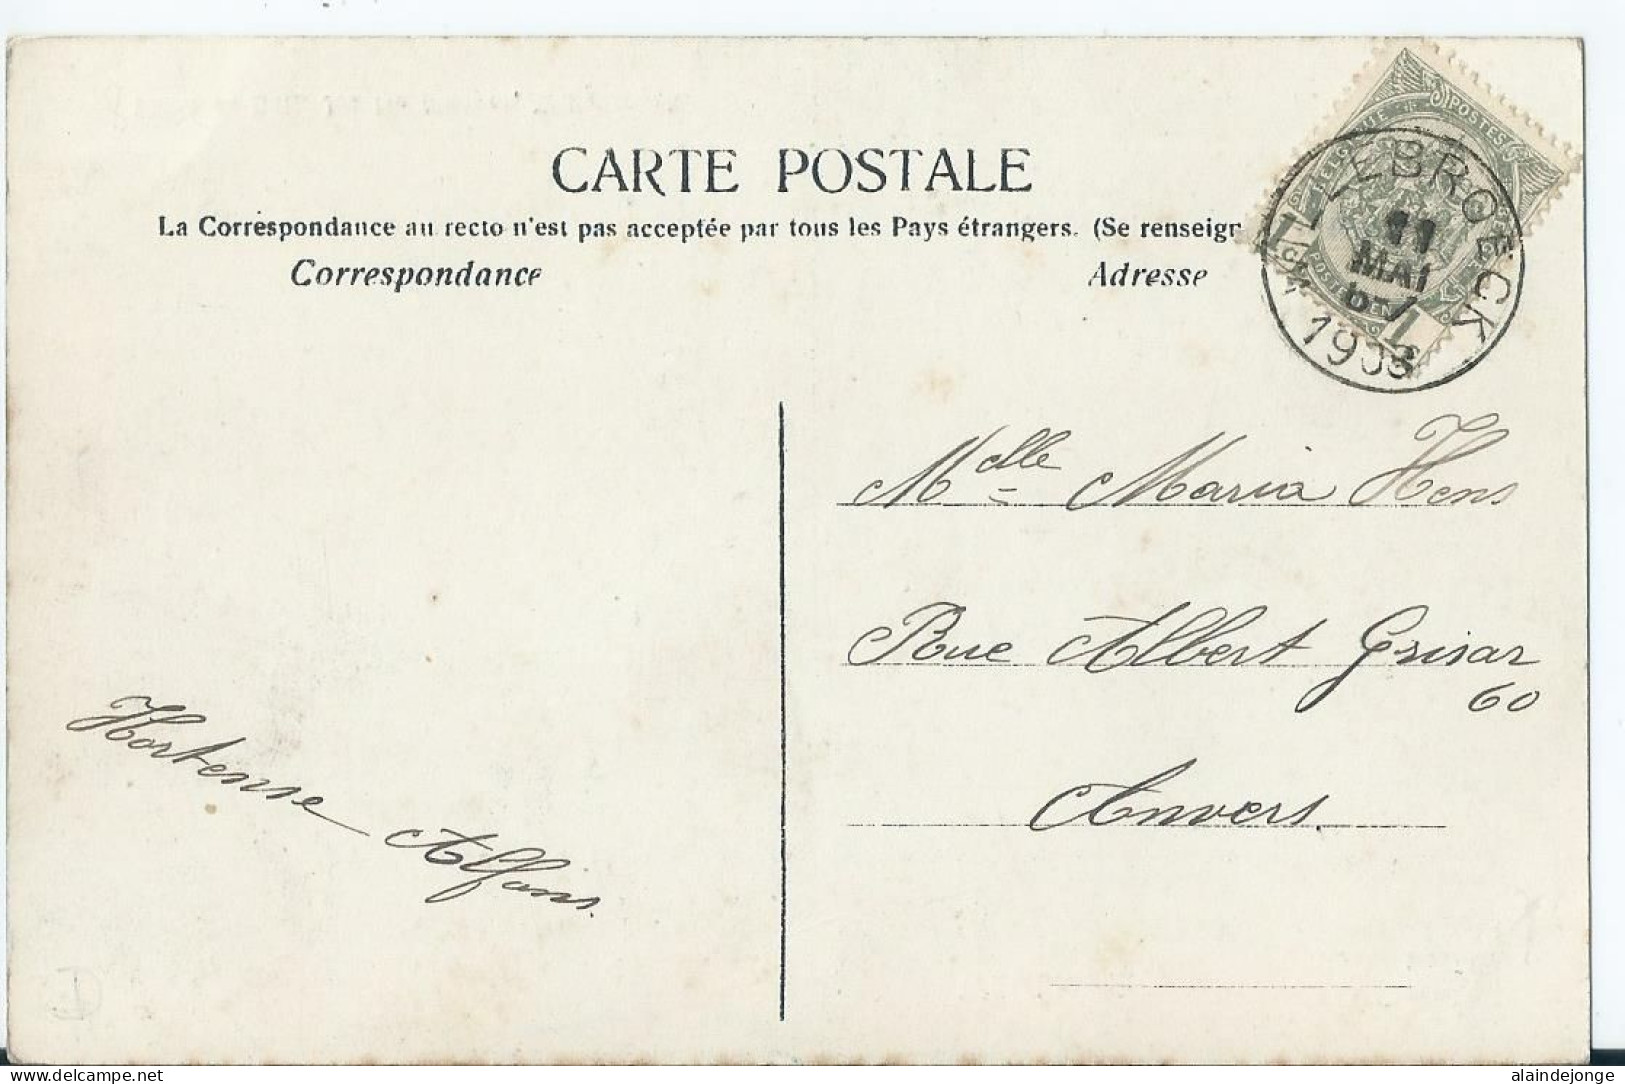 CARTE POSTALE
La Correspondance au recto n'est pas acceptée par tous les Pays étrangers. (Se renseigr
Correspondance
Adresse
BELGIQUE
POSTES
WILLEBROECK
11
MAI
6-7
1908
1
1
Melle Maria Hens
Rue Albert Grisar
60
Anvers.
Hortense Alfons.
delcampe.net
alaindejonge